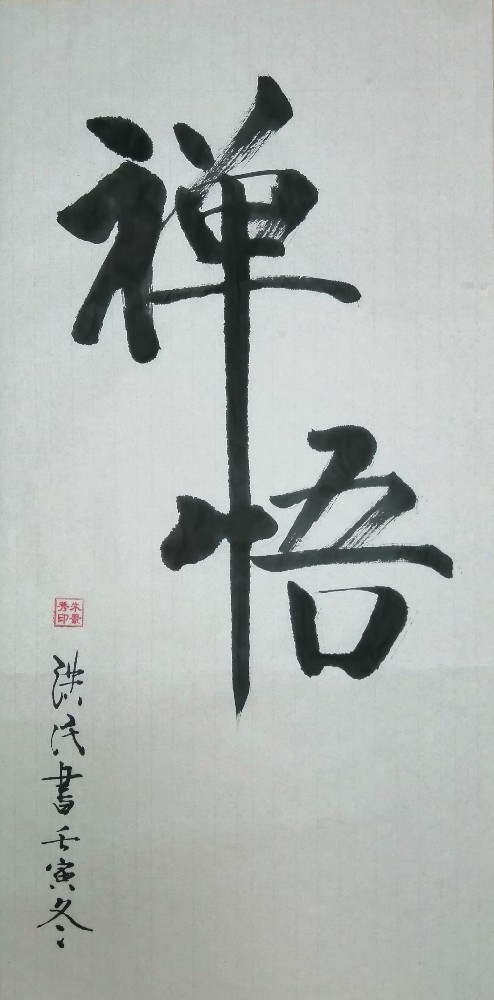 禅悟
朱景
秀印
洪書壬寅冬